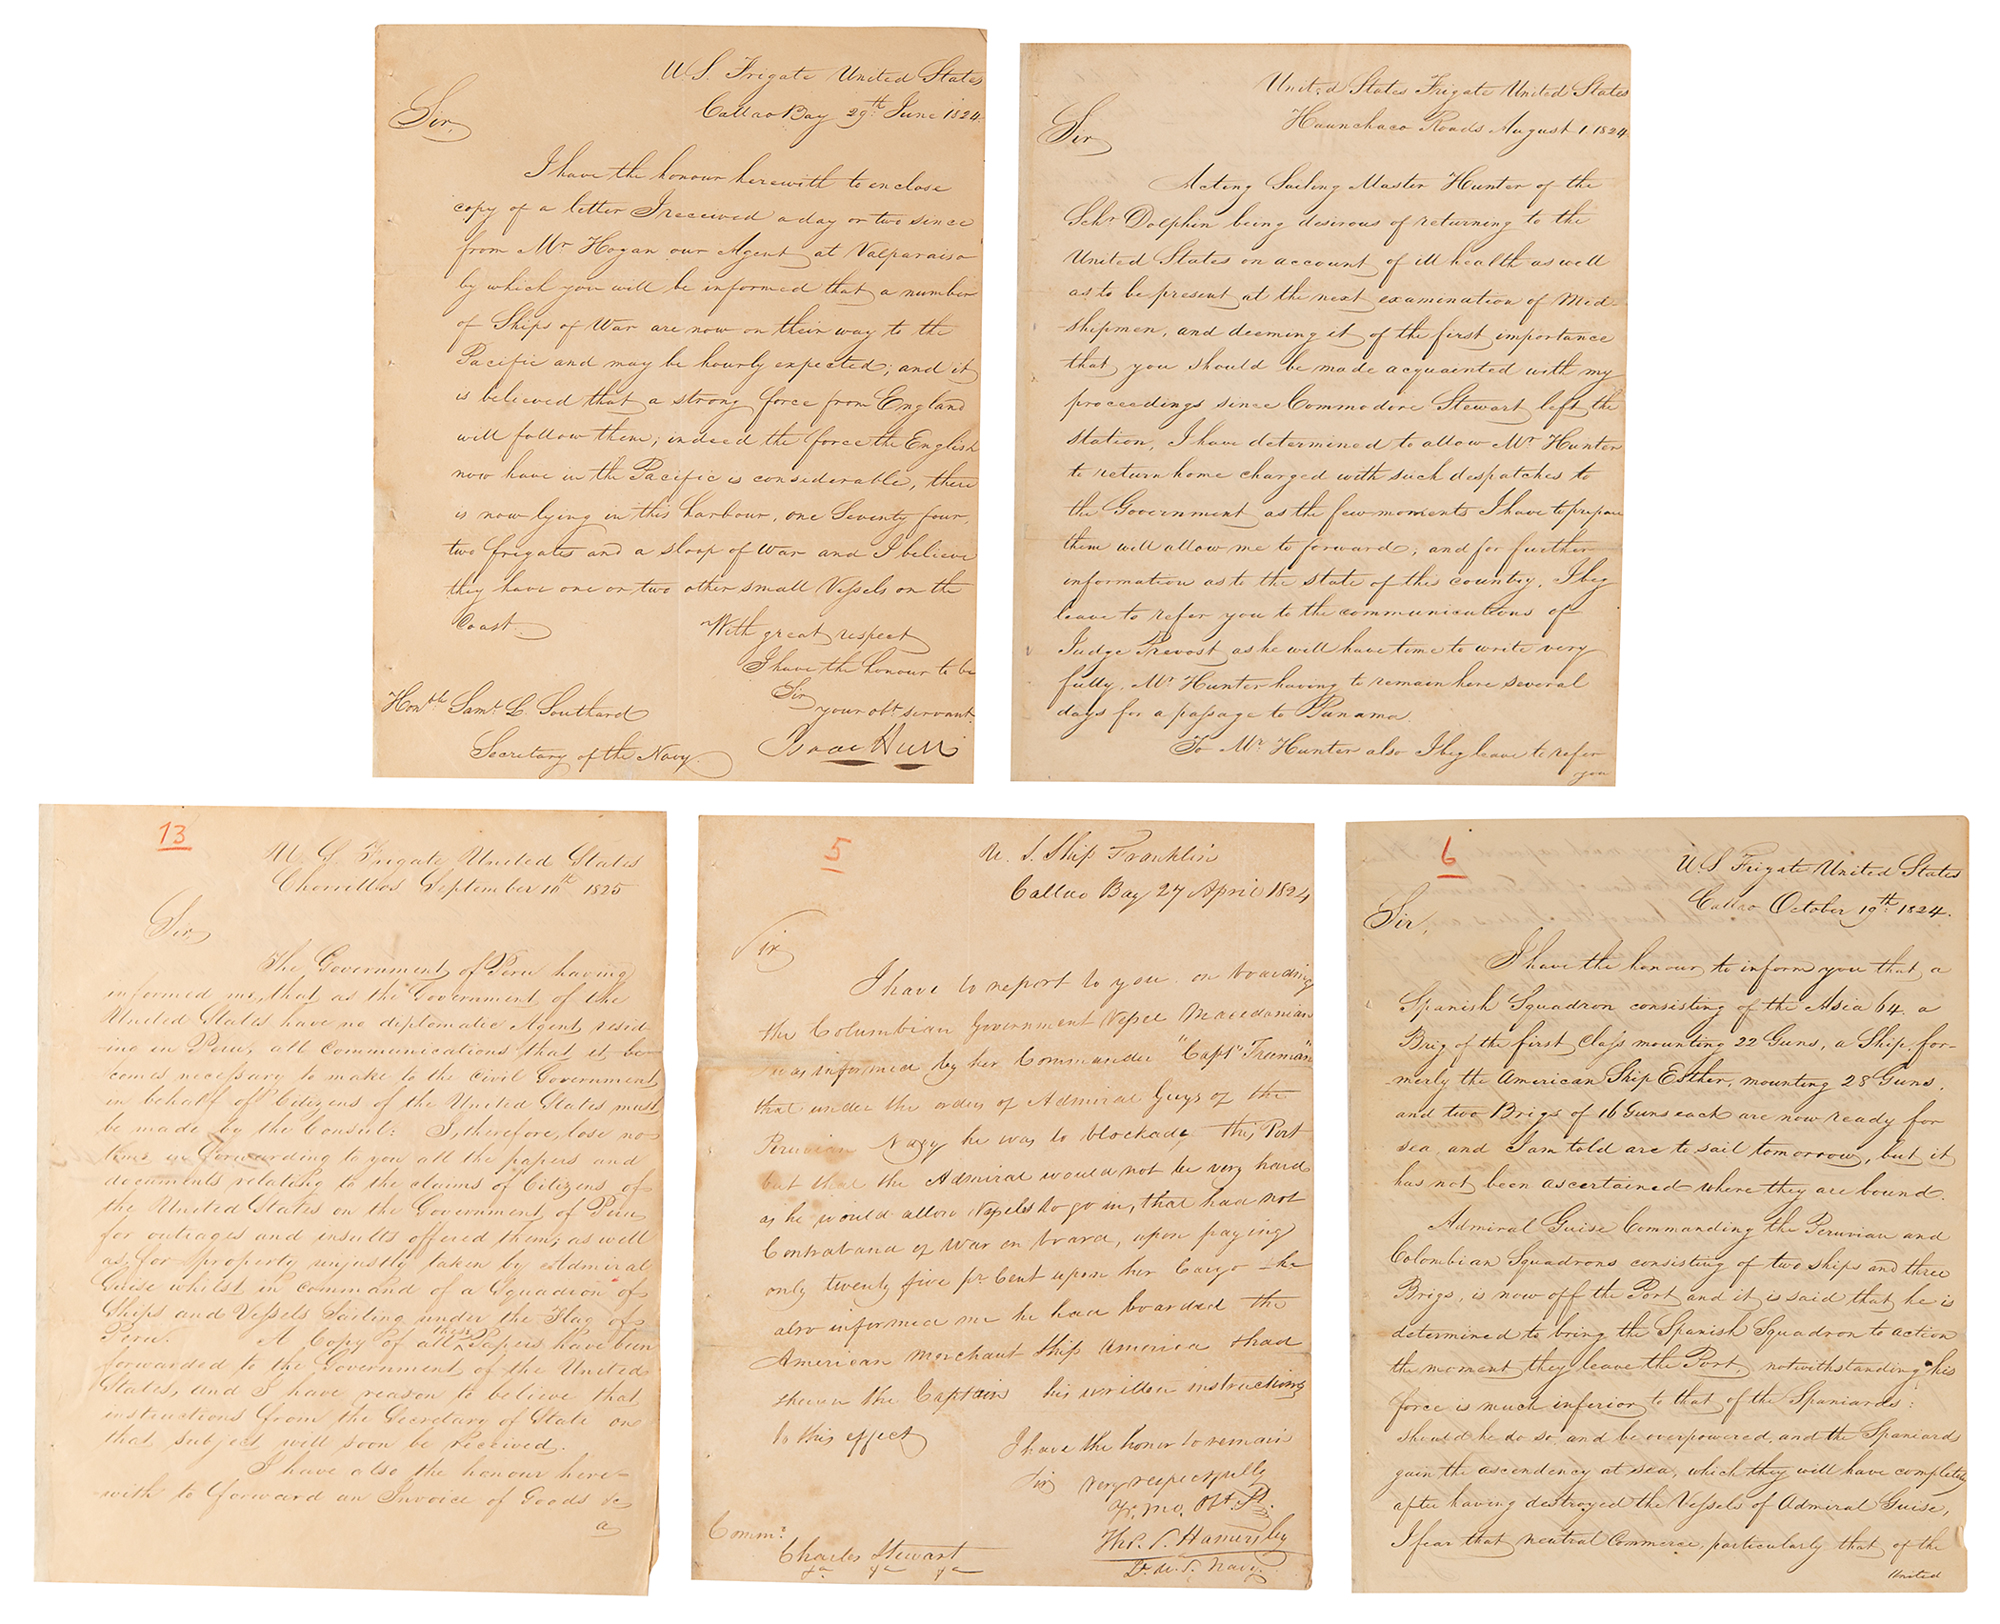 U S. Frigate United States
Callao Bay 29th June 1824.
Sir,
I have the honour herewith to enclose
copy of a letter I received a day or two since
from Mr Hogan our Agent at Valparaiso
by which you will be informed that a number
of Ships of War are now on their way to the
Pacific and may be hourly expected; and it
is believed that a strong force from England
will follow them; indeed the force the English
now have in the Pacific is considerable, there
is now lying in this harbour, one Seventy four,
two frigates and a sloop of War and I believe
they have one or two other small Vessels on the
Coast.
With great respect
I have the honour to be
Sir
your obt. servant
Isaac Hull
Honble Saml. L. Southard
Secretary of the Navy.
United States Frigate United States
Haunchaco Roads August 1. 1824
Sir
Acting Sailing Master Hunter of the
Schr Dolphin being desirous of returning to the
United States on account of ill health as well
as to be present at the next examination of Mid-
shipmen, and deeming it of the first importance
that you should be made acquainted with my
proceedings since Commodore Stewart left the
station, I have determined to allow Mr Hunter
to return home charged with such despatches to
the Government as the few moments I have to prepare
them will allow me to forward; and for further
information as to the state of this country, I beg
leave to refer you to the communications of
Judge Prevost as he will have time to write very
fully, Mr Hunter having to remain here several
days for a passage to Panama.
To Mr Hunter also I beg leave to refer
you
13
U. S. Frigate United States
Chorrillos September 10th 1825
Sir,
The Government of Peru having
informed me, that as the Government of the
United States have no diplomatic Agent resid-
ing in Peru, all communications that it be-
comes necessary to make to the Civil Government
in behalf of Citizens of the United States must
be made by the Consul: I, therefore, lose no
time in forwarding to you all the papers and
documents relating to the claims of Citizens of
the United States on the Government of Peru
for outrages and insults offered them; as well
as, for property unjustly taken by Admiral
Guise whilst in command of a Squadron of
Ships and Vessels Sailing under the Flag of
Peru. A Copy of all these Papers have been
forwarded to the Government of the United
States, and I have reason to believe that
instructions from the Secretary of State on
that subject will soon be received.
I have also the honour here-
with to forward an Invoice of Goods &c
a
5
U. S. Ship Franklin
Callao Bay 27 April 1824
Sir
I have to report to you on boarding
the Columbian Government Vessel Macedonian
I was informed by her Commander "Capt. Freeman"
that under the orders of Admiral Guys of the
Peruvian Navy he was to blockade this Port
but that the Admiral would not be very hard
as he would allow Vessels to go in, that had not
Contraband of War on board, upon paying
only twenty five pr. Cent upon her Cargo — he
also informed me he had boarded the
American merchant Ship America & had
shewn the Captain his written instructions
to this effect
I have the honor to remain
Sir very respectfully
Yr. mo. Obt. St.
Thos. S. Hamersley
Lt. U. S. Navy.
Comme.
Charles Stewart
&c &c &c
6
U. S Frigate United States
Callao October 19th. 1824.
Sir,
I have the honour to inform you that a
Spanish Squadron consisting of the Asia 64. a
Brig of the first Class mounting 22 Guns, a Ship, for-
merly the American Ship Esther, mounting 28 Guns,
and two Brigs of 16 Guns each are now ready for
sea, and I am told are to sail tomorrow, but it
has not been ascertained where they are bound.
Admiral Guise Commanding the Peruvian and
Colombian Squadrons consisting of two ships and three
Brigs, is now off the Port and it is said that he is
determined to bring the Spanish Squadron to action
the moment they leave the Port, notwithstanding his
force is much inferior to that of the Spaniards:
should he do so, and be overpowered, and the Spaniards
gain the ascendency at sea, which they will have completely
after having destroyed the Vessels of Admiral Guise,
I fear that neutral Commerce, particularly that of the
United